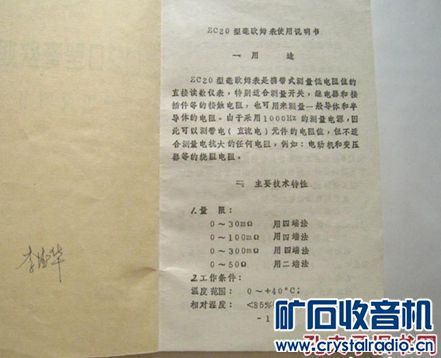 ZC20型毫欧姆表使用说明书
一 用 途
ZC20型毫欧姆表是携带式测量低电阻值的
直接读数仪表，特别适合测量开关，继电器和接
插件等的接触电阻，也可用来测量一般导体和半
导体的电阻。由于采用1000Hz的测量电源，因
此可以测带电（直流电）元件的电阻值，但不适
合测量电抗大的任何电阻，例如：电动机和变压
器等的绕阻电阻。
二 主要技术特性
1.量 限：
0～30mΩ 用四端法
0～100mΩ 用四端法
0～300mΩ 用四端法
0～50Ω 用二端法
2.工作条件：
温度范围：0～+40°C；
相对湿度：<85%
-1
矿石收音机
www.crystalradio.cn